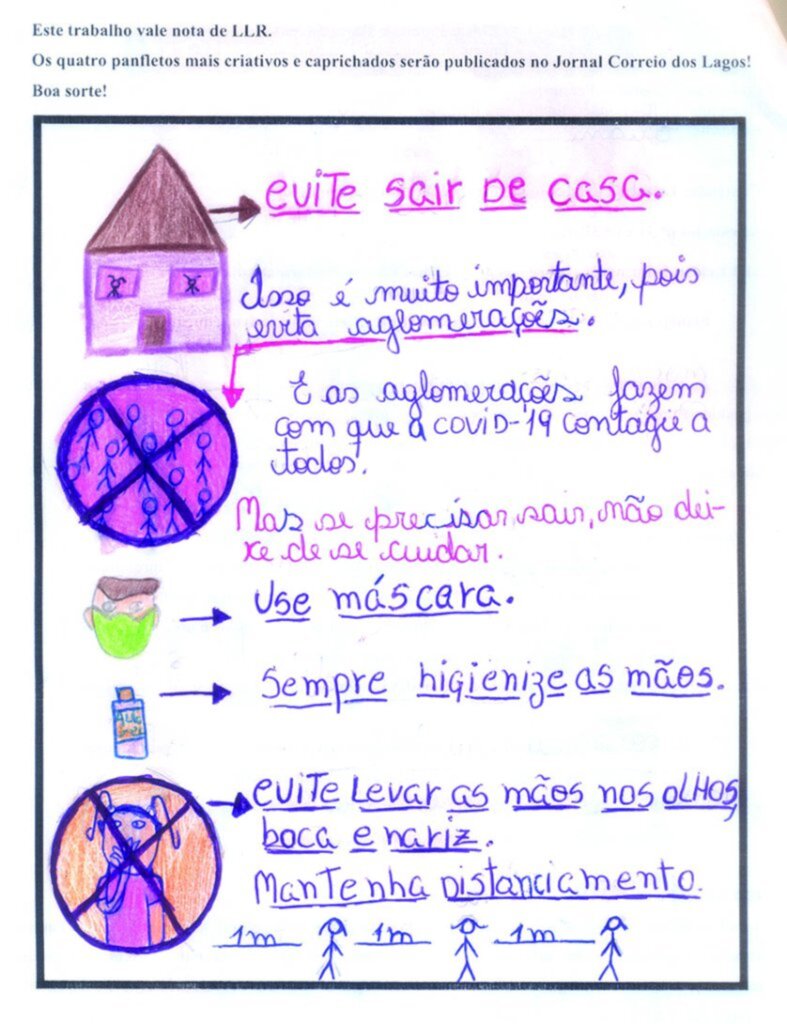 Este trabalho vale nota de LLR.
Os quatro panfletos mais criativos e caprichados serão publicados no Jornal Correio dos Lagos!
Boa sorte!
evite sair de casa.
Isso é muito importante, pois
evita aglomerações.
E as aglomerações fazem
com que a COVID-19 contagie a
todos.
Mas se precisar sair, não dei-
xe de se cuidar.
Use máscara.
Sempre higienize as mãos.
evite Levar as mãos nos OLHOS,
boca e nariz.
Mantenha Distanciamento.
1m 1m 1m